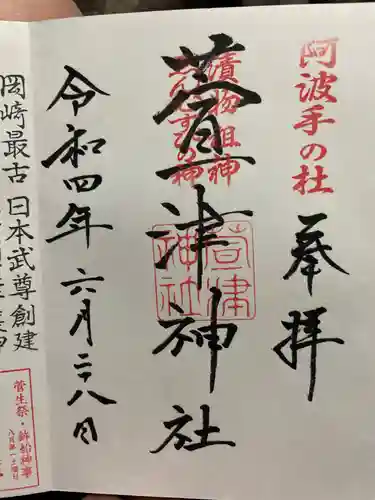 阿波手の杜
奉拝
漬物祖神
えんむすびの神
萱津神社
萱津神社
令和四年六月二十八日
岡崎最古 日本武尊創建
菅生祭・鉾船神事